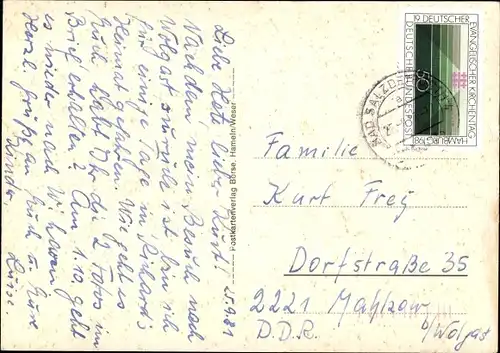 Liebe Hete, lieber Kurt!
Nachdem mein Besuch nach
Wolgast zurück ist bin ich
für einige Tage in Richards
Heimat gefahren. Wie geht es
Euch. Habt Ihr die 2 Fotos im
Brief erhalten? Am 1.10 geht
es wieder nach
Herzl. Grüße an Euch u. Eure
Kinder,
25.9.81
Postkartenverlag Börse, Hameln/Weser
19. DEUTSCHER
EVANGELISCHER KIRCHENTAG
HAMBURG 1981
DEUTSCHE BUNDESPOST
50
BAD SALZDETFURTH
Familie
Kurt Frey
Dorfstraße 35
2221 Mahlzow
b/Wolgast
D.D.R.